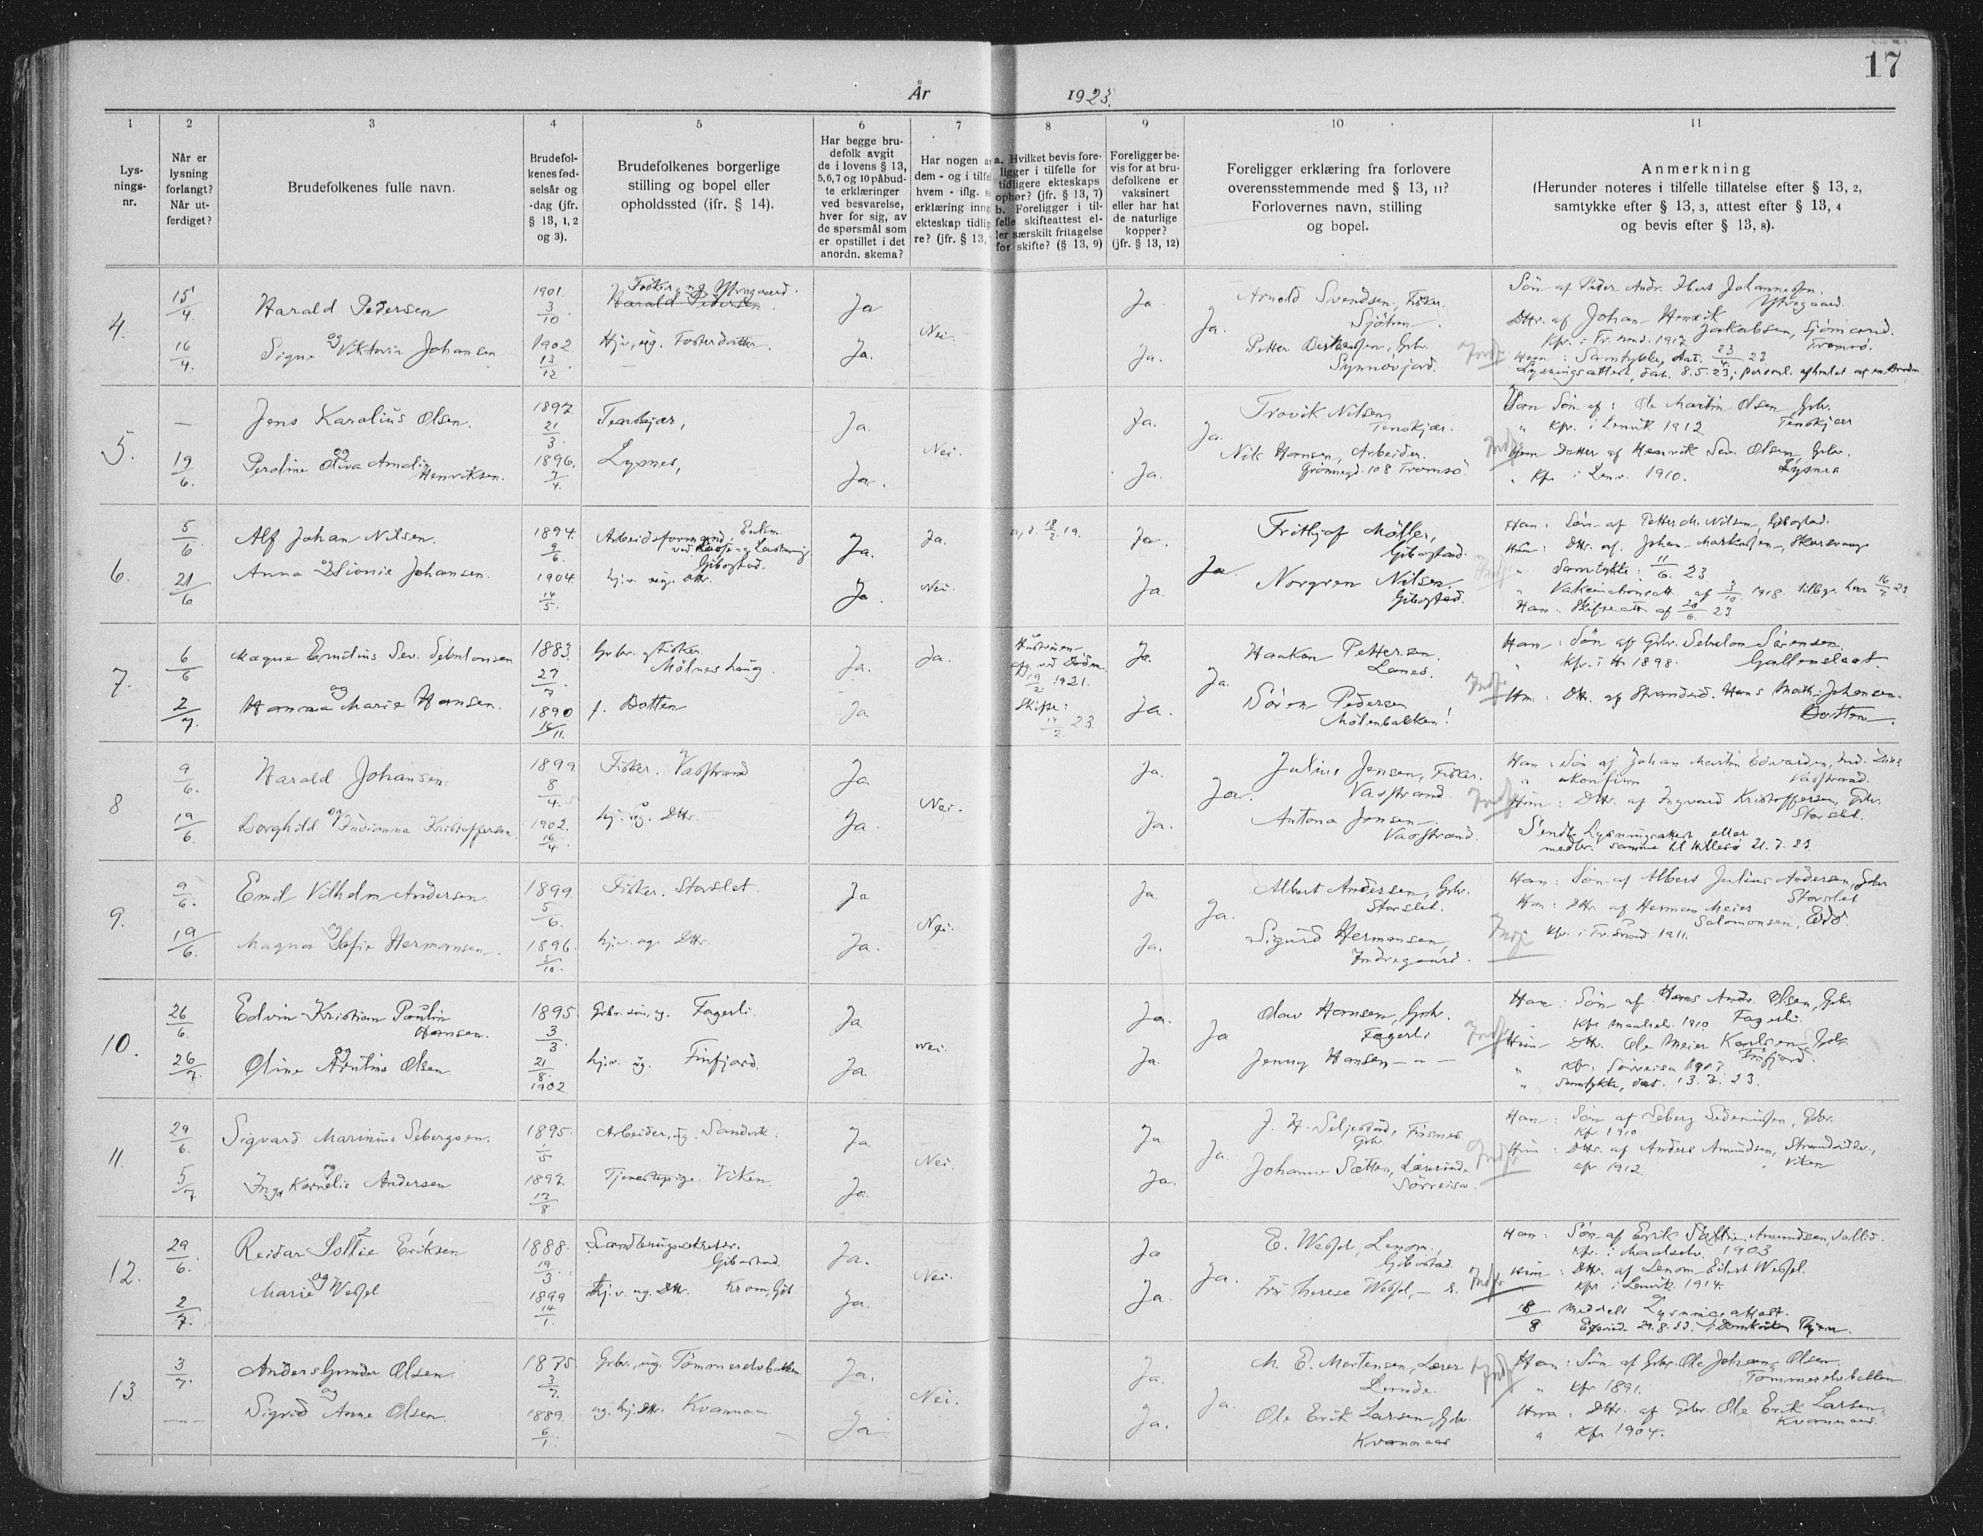 17
År 1923.
1 2 3 4 5 6 7 8 9 10 11
Lysningsnr.
Når er lysning forlangt? Når utferdiget?
Brudefolkenes fulle navn.
Brudefolkenes fødselsår og -dag (jfr. § 13, 1, 2 og 3).
Brudefolkenes borgerlige stilling og bopel eller opholdssted (ifr. § 14).
Har begge brudefolk avgit de i lovens § 13, 5,6,7 og 10 påbudte erklæringer ved besvarelse, hver for sig, av de spørsmål som er opstillet i det anordn. skema?
Har nogen a
dem - og i tilfel
hvem - iflg. s
erklæring inng
ekteskap tidlig
re? (jfr. § 13,
a. Hvilket bevis foreligger i tilfelle for tidligere ekteskaps ophør? (jfr. § 13, 7)
b. Foreligger i tilfelle skifteattest eller særskilt fritagelse for skifte? (§ 13, 9)
Foreligger bevis for at brudefolkene er vaksinert eller har hat de naturlige kopper? (jfr. § 13, 12)
Foreligger erklæring fra forlovere overensstemmende med § 13, 11? Forlovernes navn, stilling og bopel.
Anmerkning
(Herunder noteres i tilfelle tillatelse efter § 13, 2, samtykke efter § 13, 3, attest efter § 13, 4 og bevis efter § 13, 8).
4. 15/4 Harald Pedersen 1901 3/10. Fisker, ug. Ytregaard. Harald Pedersen Ja Nei. Ja. Ja. Arnold Svendsen, Fisker. Søn af Peder Andr. Johannessen. Ytregaard.
16/4. og Signe Viktoria Johansen 1902 13/12 Hjv, ug. Fosterdatter. Ja. Ja. Petter Grbr. Dtr. af Johan Henrik Jakobsen, Sjømand. Tromsø.
Kfr. i Tr.sund. 1917
Samtykke, dat. 23/4 23
Lysningsattest, dat. 8.5.23; personl. afhentet af
5. — Jens Karolius Olsen. 1897 21/3. Tenskjær, Ja. Nei. Ja. Ja. Trovik Nilsen, Tenskjær. Søn af: Ole Martin Olsen, Grbr. Tenskjær
" Kfr. i Lenvik 1912
19/6. og Peroline Oliva Amalie Henriksen. 1896. 7/4. Lysnes, Ja. Ja. Nik Hansen, Arbeider. Grønnegd. 108 Tromsø. Datter af Henrik Sev. Olsen, Grbr. Lysnes
" Kfr. i Lenv. 1910.
6. 5/6. Alf Johan Nilsen. 1894. 9/6. Arbeidsformand, Enkm. Gibostad. Ja. Ja. Ja. Ja. Fritljof Møller, Gibostad. Han: Søn af Petter M. Nilsen, Gibostad.
21/6 og Anna Dionie Johansen. 1904 14/5. hjv. ug. dtr. Ja Nei. Ja. Norgren Nilsen. Gibostad. Hun: Dtr. af Johan Markussen,
" Samtykke: 11/6. 23
" Vaksinationsatt. af 3/10 1918
Han: Skifteatt. af 20/6. 23
7. 6/6 Magne Emilius Sev. Sebulonsen 1883. 27/7 Grbr. og Fisker Mølneshaug. Ja. Ja. Hustruen afg. ved Døden 19/2 1921. Ja. Ja. Haakon Pettersen. Lanes. Han: Søn af Grbr. Sebulon Sørensen.
" Kfr. i 1898.
2/7. og Hanna Marie Hansen. 1890 16/11. f. Botten Ja Skifte: 14/2. 23 Ja. Søren Pedersen Mølenbakken! Hun: Dtr. af Strandsid. Hans Math. Johansen. Botten.
8 9/6. Harald Johansen. 1899 8/4. Fisker. Vasstrand Ja Nei. Ja. Ja. Julius Jensen, Fisker. Vasstrand. Han: Søn af Johan Martin Edvardsen, Vasstrand.
" ukonfirm
19/6 og Borghild Indianna Kristoffersen. 1902. 16/4. hjv. ug. Dtr. Ja. Ja. Antona Jensen Vasstrand. Hun: Dtr. af Ingvard Kristoffersen, Grbr. Storslet.
Sendt Lysningsattest eller
medbr. samme til Hillesø 21.7.23
9. 9/6. Emil Vilhelm Andersen. 1899. 5/6. Fisker. Storslet. Ja Nei. Ja. Ja. Albert Andersen, Grbr. Storslet. Han: Søn af Albert Julius Andersen, Grbr Storslet
19/6. og Magna Sofie Hermansen. 1896. 5/10. hjv. ug. Dtr. Ja. Ja. Sigurd Hermansen, Indregaard. Hun: Dtr. af Herman Meier Salomonsen,
" Kfr. i Tr.sund 1911.
10. 26/6. Edvin Kristian Paulin Hansen. 1895. 3/3 Grbr. søn, ug. Fagerli. Ja Nei. Ja. Ja Olav Hansen, Grbr. Fagerli Han: Søn af Hans Andr. Olsen, Grbr. Fagerli.
Kfr Maalselv. 1910
26/7 og Oline Antine Olsen. 21/8. 1902 hjv. ug. Finfjord. Ja. Ja. Jenny Hansen — " — Hun Dtr. Ole Meier Karlsen, Grbr. Finfjord.
" Kfr. Sørreisa 1917
" Samtykke, dat. 13.7.23.
11. 29/6. Sigvard Marinius Sebergsen. 1895. 1/5 Arbeider, ug. Sandvik. Ja Nei. Ja Ja. J. H. Seljestad, Grbr. Finsnes Han: Søn af Seberg Grbr.
Kfr. 1910
5/7 og Inga Kornelie Andersen 1897 17/8 Tjenestepige. Viken. Ja. Ja. Johanne Sætten, Lærerinde Sørreisa. Hun: Dtr. af Anders Amundsen, Strandsidder, Viken
Kfr 1912.
12. 29/6. Reidar Sollie Eriksen 1888. 19/3 Landbrugssekretær. Gibostad. Ja. Nei. Ja Ja. E. Wessel, Lensm., Gibostad. Han: Søn af Erik Amundsen Sollie.
Kfr. i Maalselv. 1903
2/7. og Marie Wessel 1899 14/1. hjv. ug. Dtr. Ja. Ja. Frk Therese Wessel, — Hun: Dtr. af Lensm. Wessel.
Kfr i Lenvik 1914.
18/8 Meddelt Lysningsattest.
13. 3/7. Anders Gunder Olsen 1875. 3/7. Grbr., ug. Tømmerelvbakken Ja. Nei. Ja. Ja. M. E. Mortensen, Lærer Lunde. Han: Søn af Grbr. Ole Johan Olsen. Tømmerelvbakken
" Kfr 1891.
— og Sigrid Anne Olsen. 1889. 6/1. ug. hj. Dtr. Kvannaas Ja. Ja. Ole Erik Larsen, Grbr. Kvannaas Hun: Dtr. af Grbr. Ole Erik Larsen, Kvannaas.
" Kfr 1904.